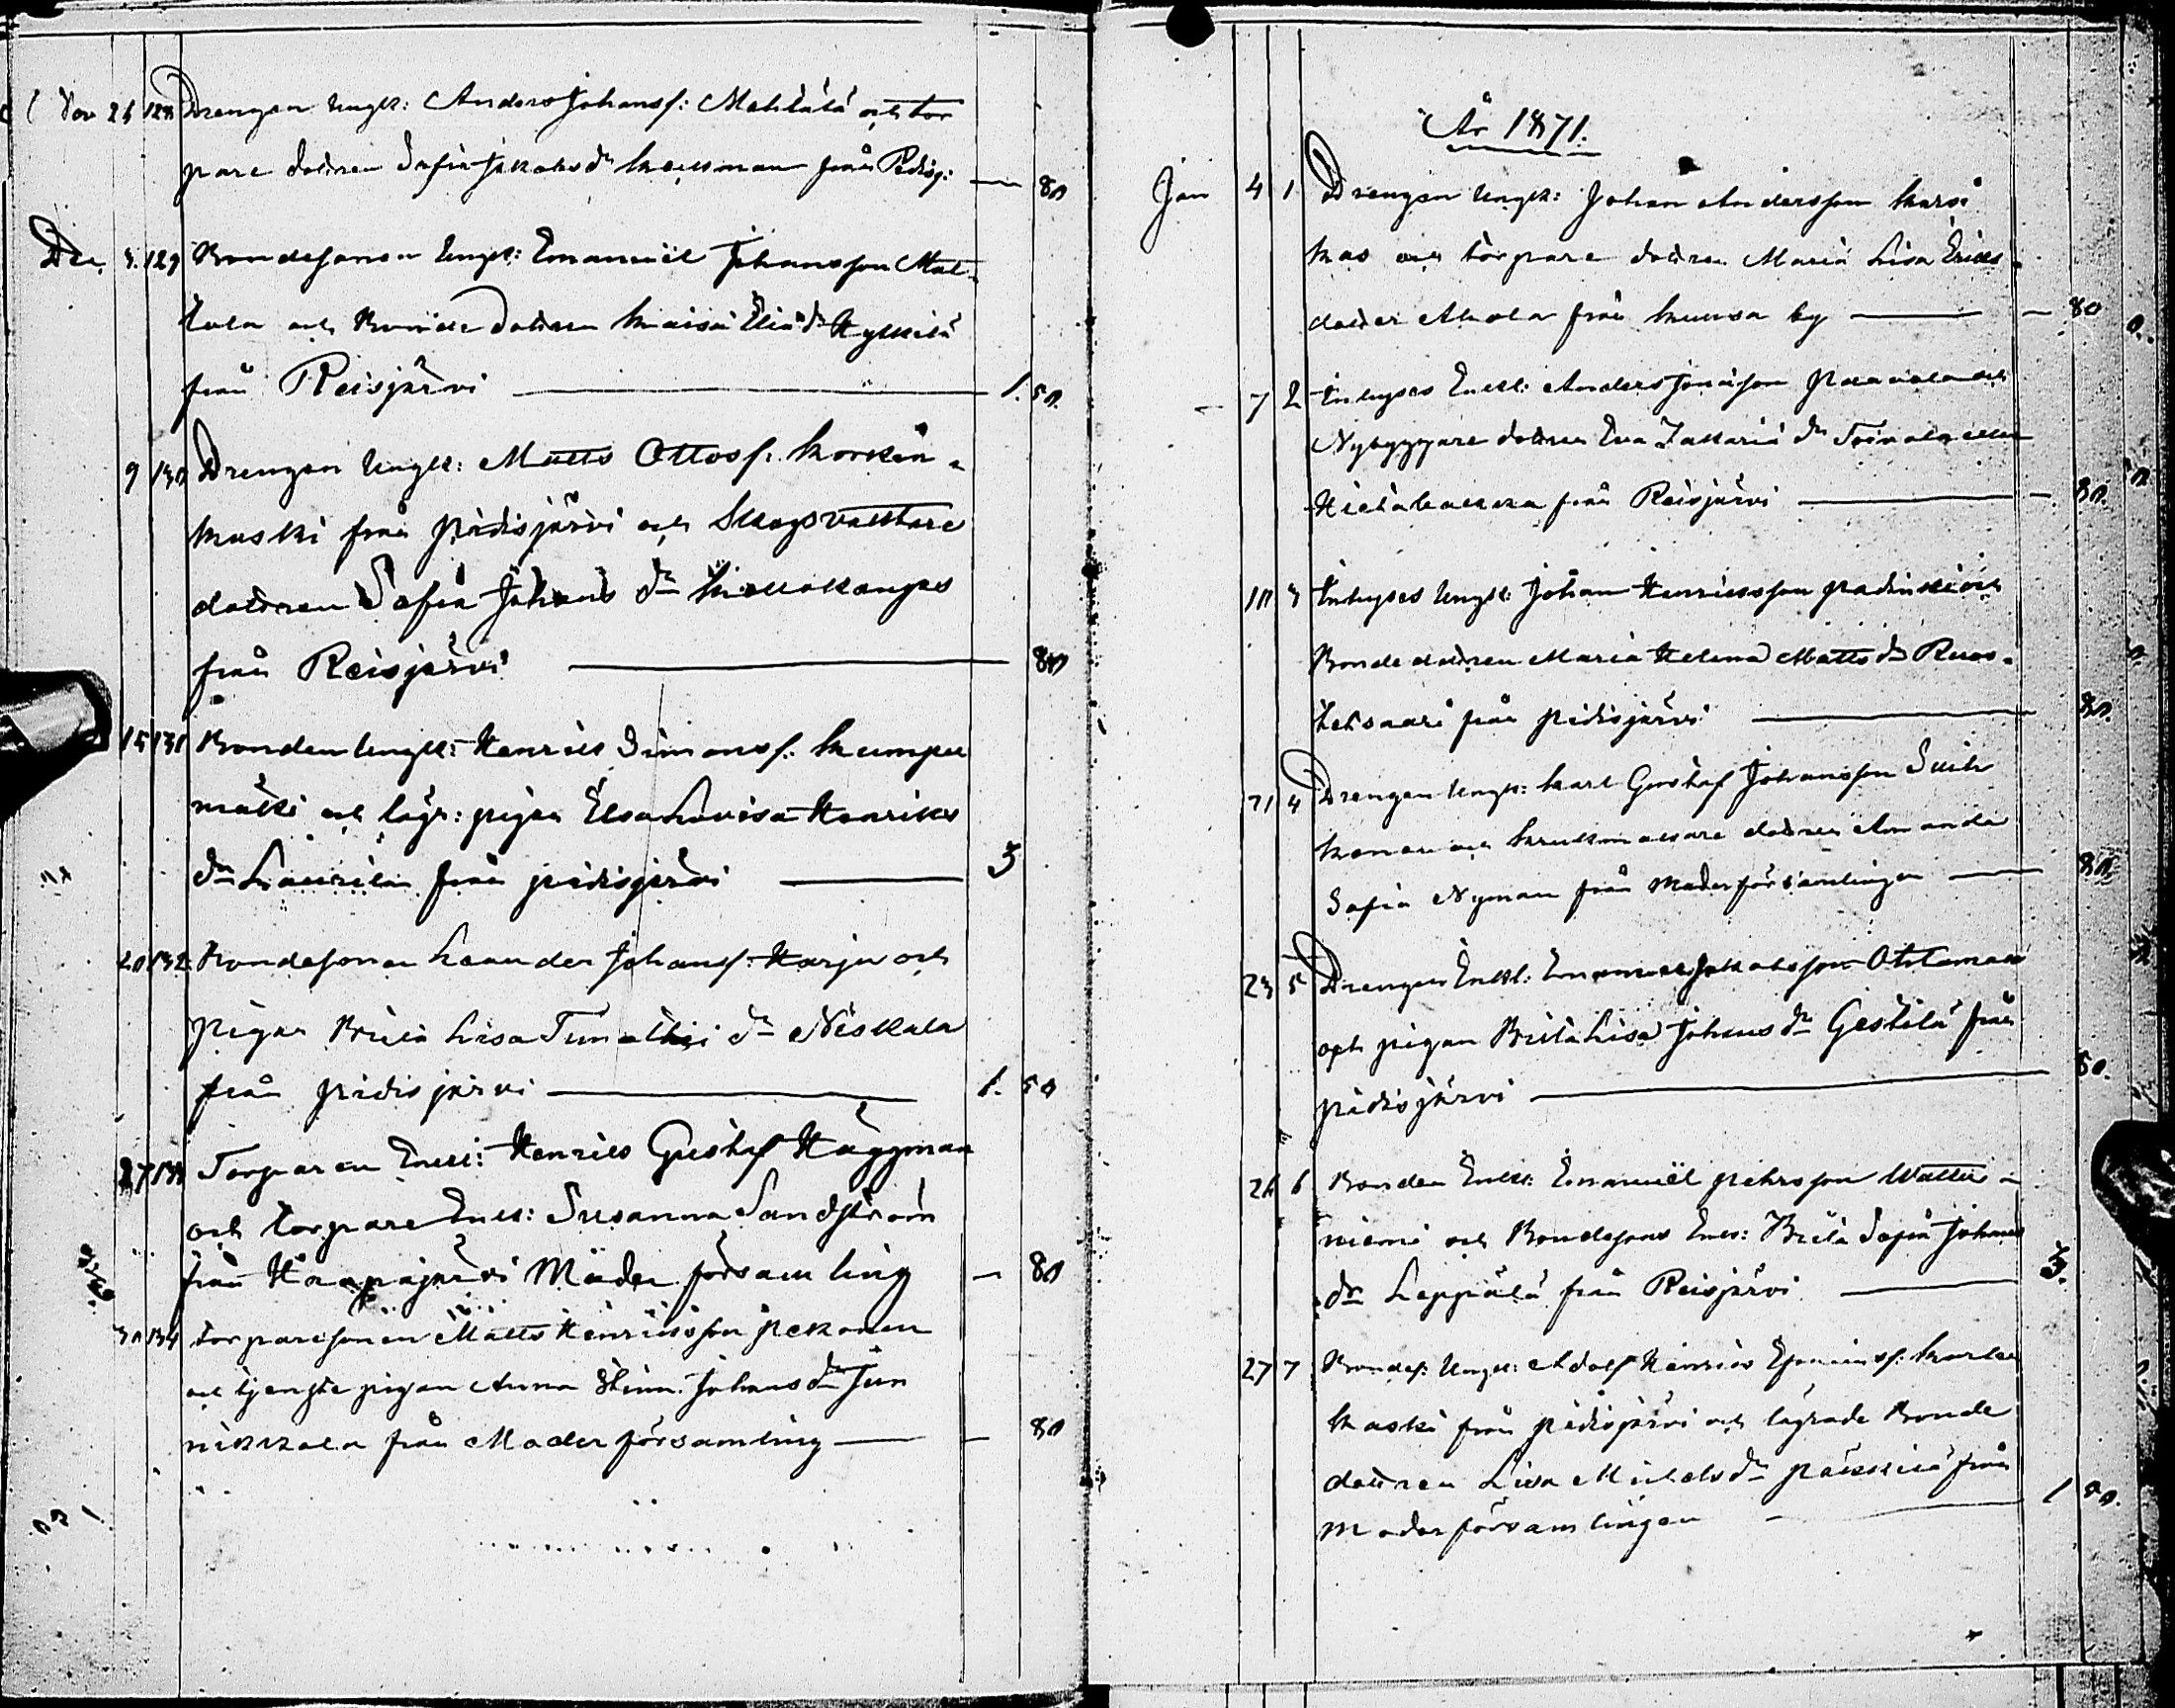 Nov 26 128 Drengen Ungk: Anders Johansf: Mehtälä och tor
pare dottren Sofia Jakobs dr från Pidisj: — 80
Dec 3. 129 Bondesonen Ungk: Emanuel Johansson Mat
tala och Bonde dottren Kaisa Elia dr Kylkilä
från Reisjärvi — 1. 50.
9 130 Drengen Ungk: Matts Ottosf: Korkia
kaski från Pidisjärvi och Skogsvaktare
dottren Sofia Johans dr Kiwikangas
från Reisjärvi — 80
15 131 Bonden Ungk: Henrik Simonsf: Kumpu
mäki och lägr: pigan Elsa Lovisa Henriks
dr Laurila från pidisjärvi — 3
20 132 Bondesonen Leander Johansf: Harju och
pigan Brita Lisa Timothei dr Niskala
från pidisjärvi — 1. 50
27 133 Torparen Enkl: Henrik Gustaf Häggman
och torpare Enk: Susanna Sandström
från Haapajärvi Moder församling — 80
30 134 torparesonen Matts Henriksson Pekonen
och tjenste pigan Anna Stina Johans dr Jun
nikkala från Moder församling — 80
År 1871.
Jan 4 1 Drengen Ungk: Johan Andersson Karsi
kas och torpare dottren Maria Lisa Eriks
dotter Ahola från Kuusa by — 80
7 2 Inhyses Enkl: Anders Jonasson Paavola och
Nybyggare dottren Eva Zakaria dr Toivola eller
Hietakakka från Reisjärvi — 80.
10 3 Inhyses Ungk: Johan Henriksson och
Bonde dottren Maria Helena Matts dr Ruos-
tetsaari från pidisjärvi — 80.
21 4 Drengen Ungk: Karl Gustaf Johansson Suih
konen och Krukmakare dottren Amanda
Sofia Nyman från Moderförsamlingen — 80.
23 5 Drengen Enkl: Emanuel Jakobsson Ohtamaa
och pigan Brita Lisa Johans dr Gestilä från
pidisjärvi — 80.
26 6 Bonden Enkl: Emanuel Pehrsson Watti-
niemi och Bondesons Enk: Brita Sofia Johans
dr Leppälä från Reisjärvi — 3.
27 7 Bondes: Ungk: Adolf Henrik Korkea
kaski från pidisjärvi och lägrade Bonde
dottren Lisa Michels dr från
Moderförsamlingen — 1 50.